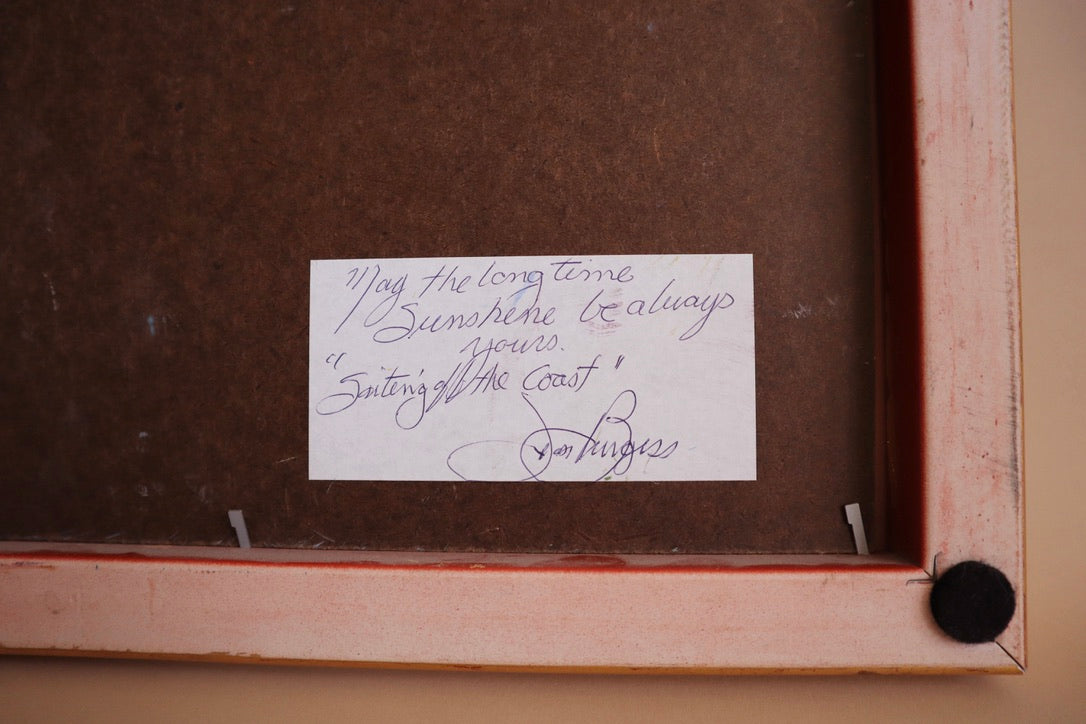 May the long time
Sunshine be always
yours.
" off the Coast "
Burgess